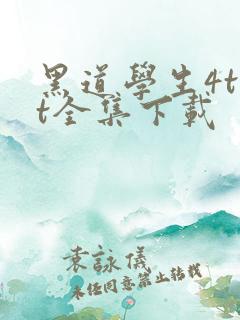 黑道學生4t
t全集下載
袁詠儀
未任同意禁止轉載